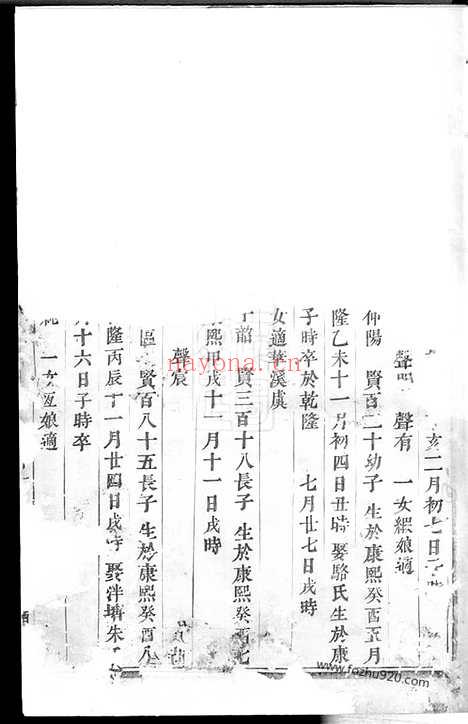 亥二月初七日子時
聲 聲有 一女緞娘適
仲陽 賢百二十幼子 生於康熙癸酉五月
隆乙未十一月初四日丑時 娶駱氏生於康
子時卒於乾隆 七月廿七日戌時
女適華溪虞
韶 賢三百十八長子 生於康熙癸酉七
熙甲戌十一月十一日戌時
聲宸
區 賢百八十五長子 生於康熙癸酉八
隆丙辰十一月廿四日戌時 娶泮塘朱
月十六日子時卒
一女 娘適
nayona.cn
www.fozhu920.com